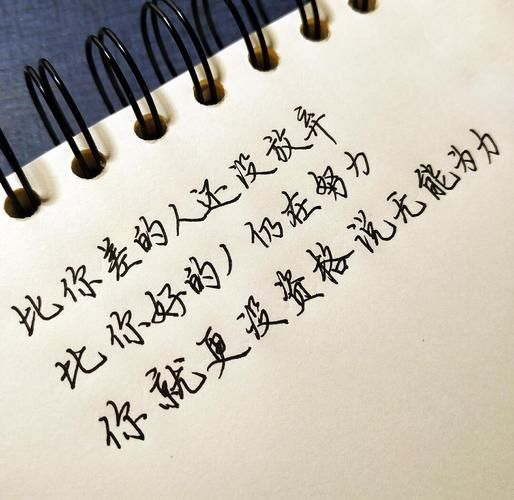 比你差的人还没放弃
比你好的人仍在努力
你就更没资格说无能为力